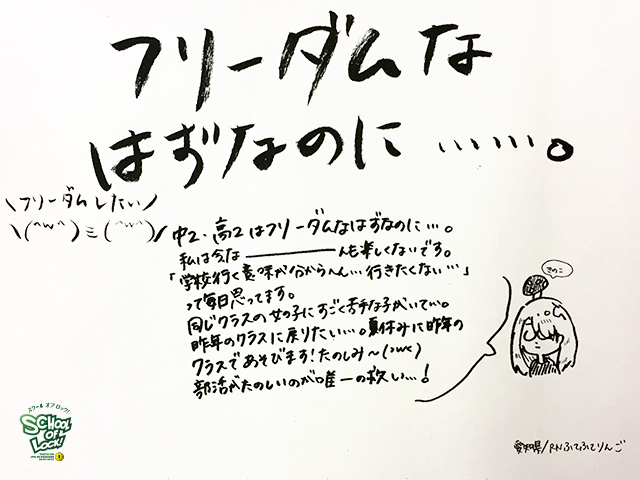 フリーダムな
はずなのに……。
\フリーダムしたい/
\(^w^)ミ(^w^)/
中2・高2はフリーダムなはずなのに…。
私は今な―――――んも楽しくないです。
「学校行く意味が分からへん…行きたくない…」
って毎日思ってます。
同じクラスの女の子にすごく苦手な子がいてぃ。
昨年のクラスに戻りたい…。夏休みに昨年の
クラスであそびます!たのしみ～(>ω<)
部活がたのしいのが唯一の救い…!
きのこ
スクール オブ ロック!
SCHOOL
OF
LOCK!
愛知県/RNふてふてりんご